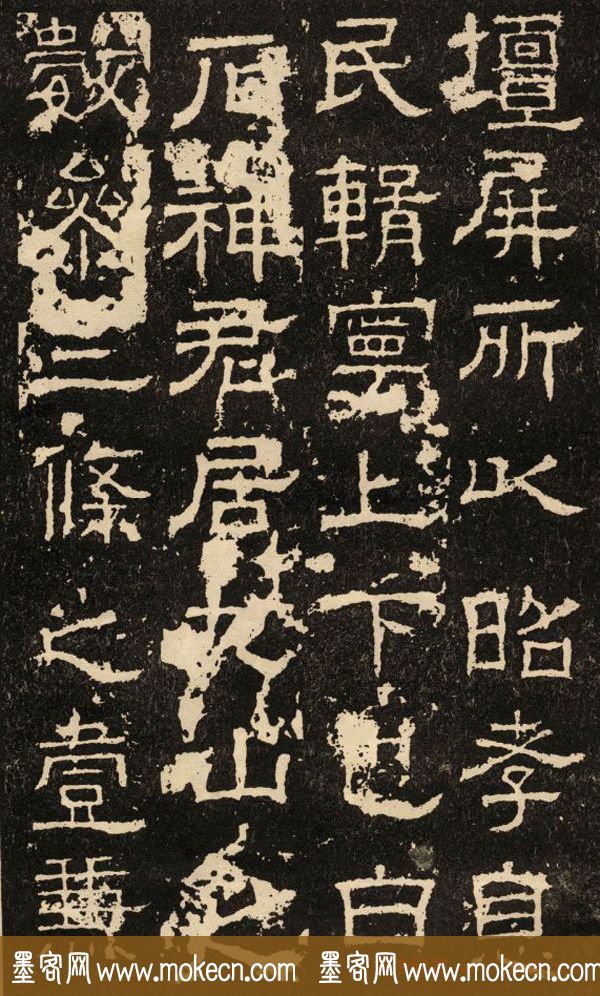 壇屏所以昭孝息
民輯寧上下也白
石神君居九山之
數參三條之壹兼
墨客网 www.mokecn.com 墨客网 www.mokecn.com